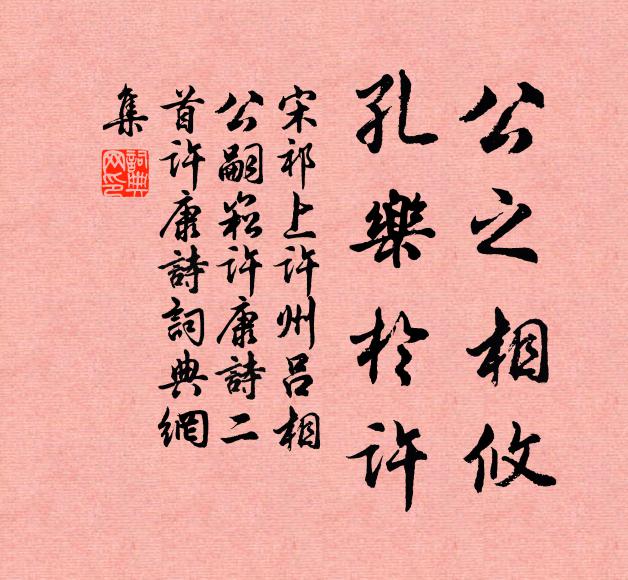 公之相攸
孔樂於許
宋祁上许州呂相
公嗣崧許康詩二
首许康詩詞典網
集
詞典網印